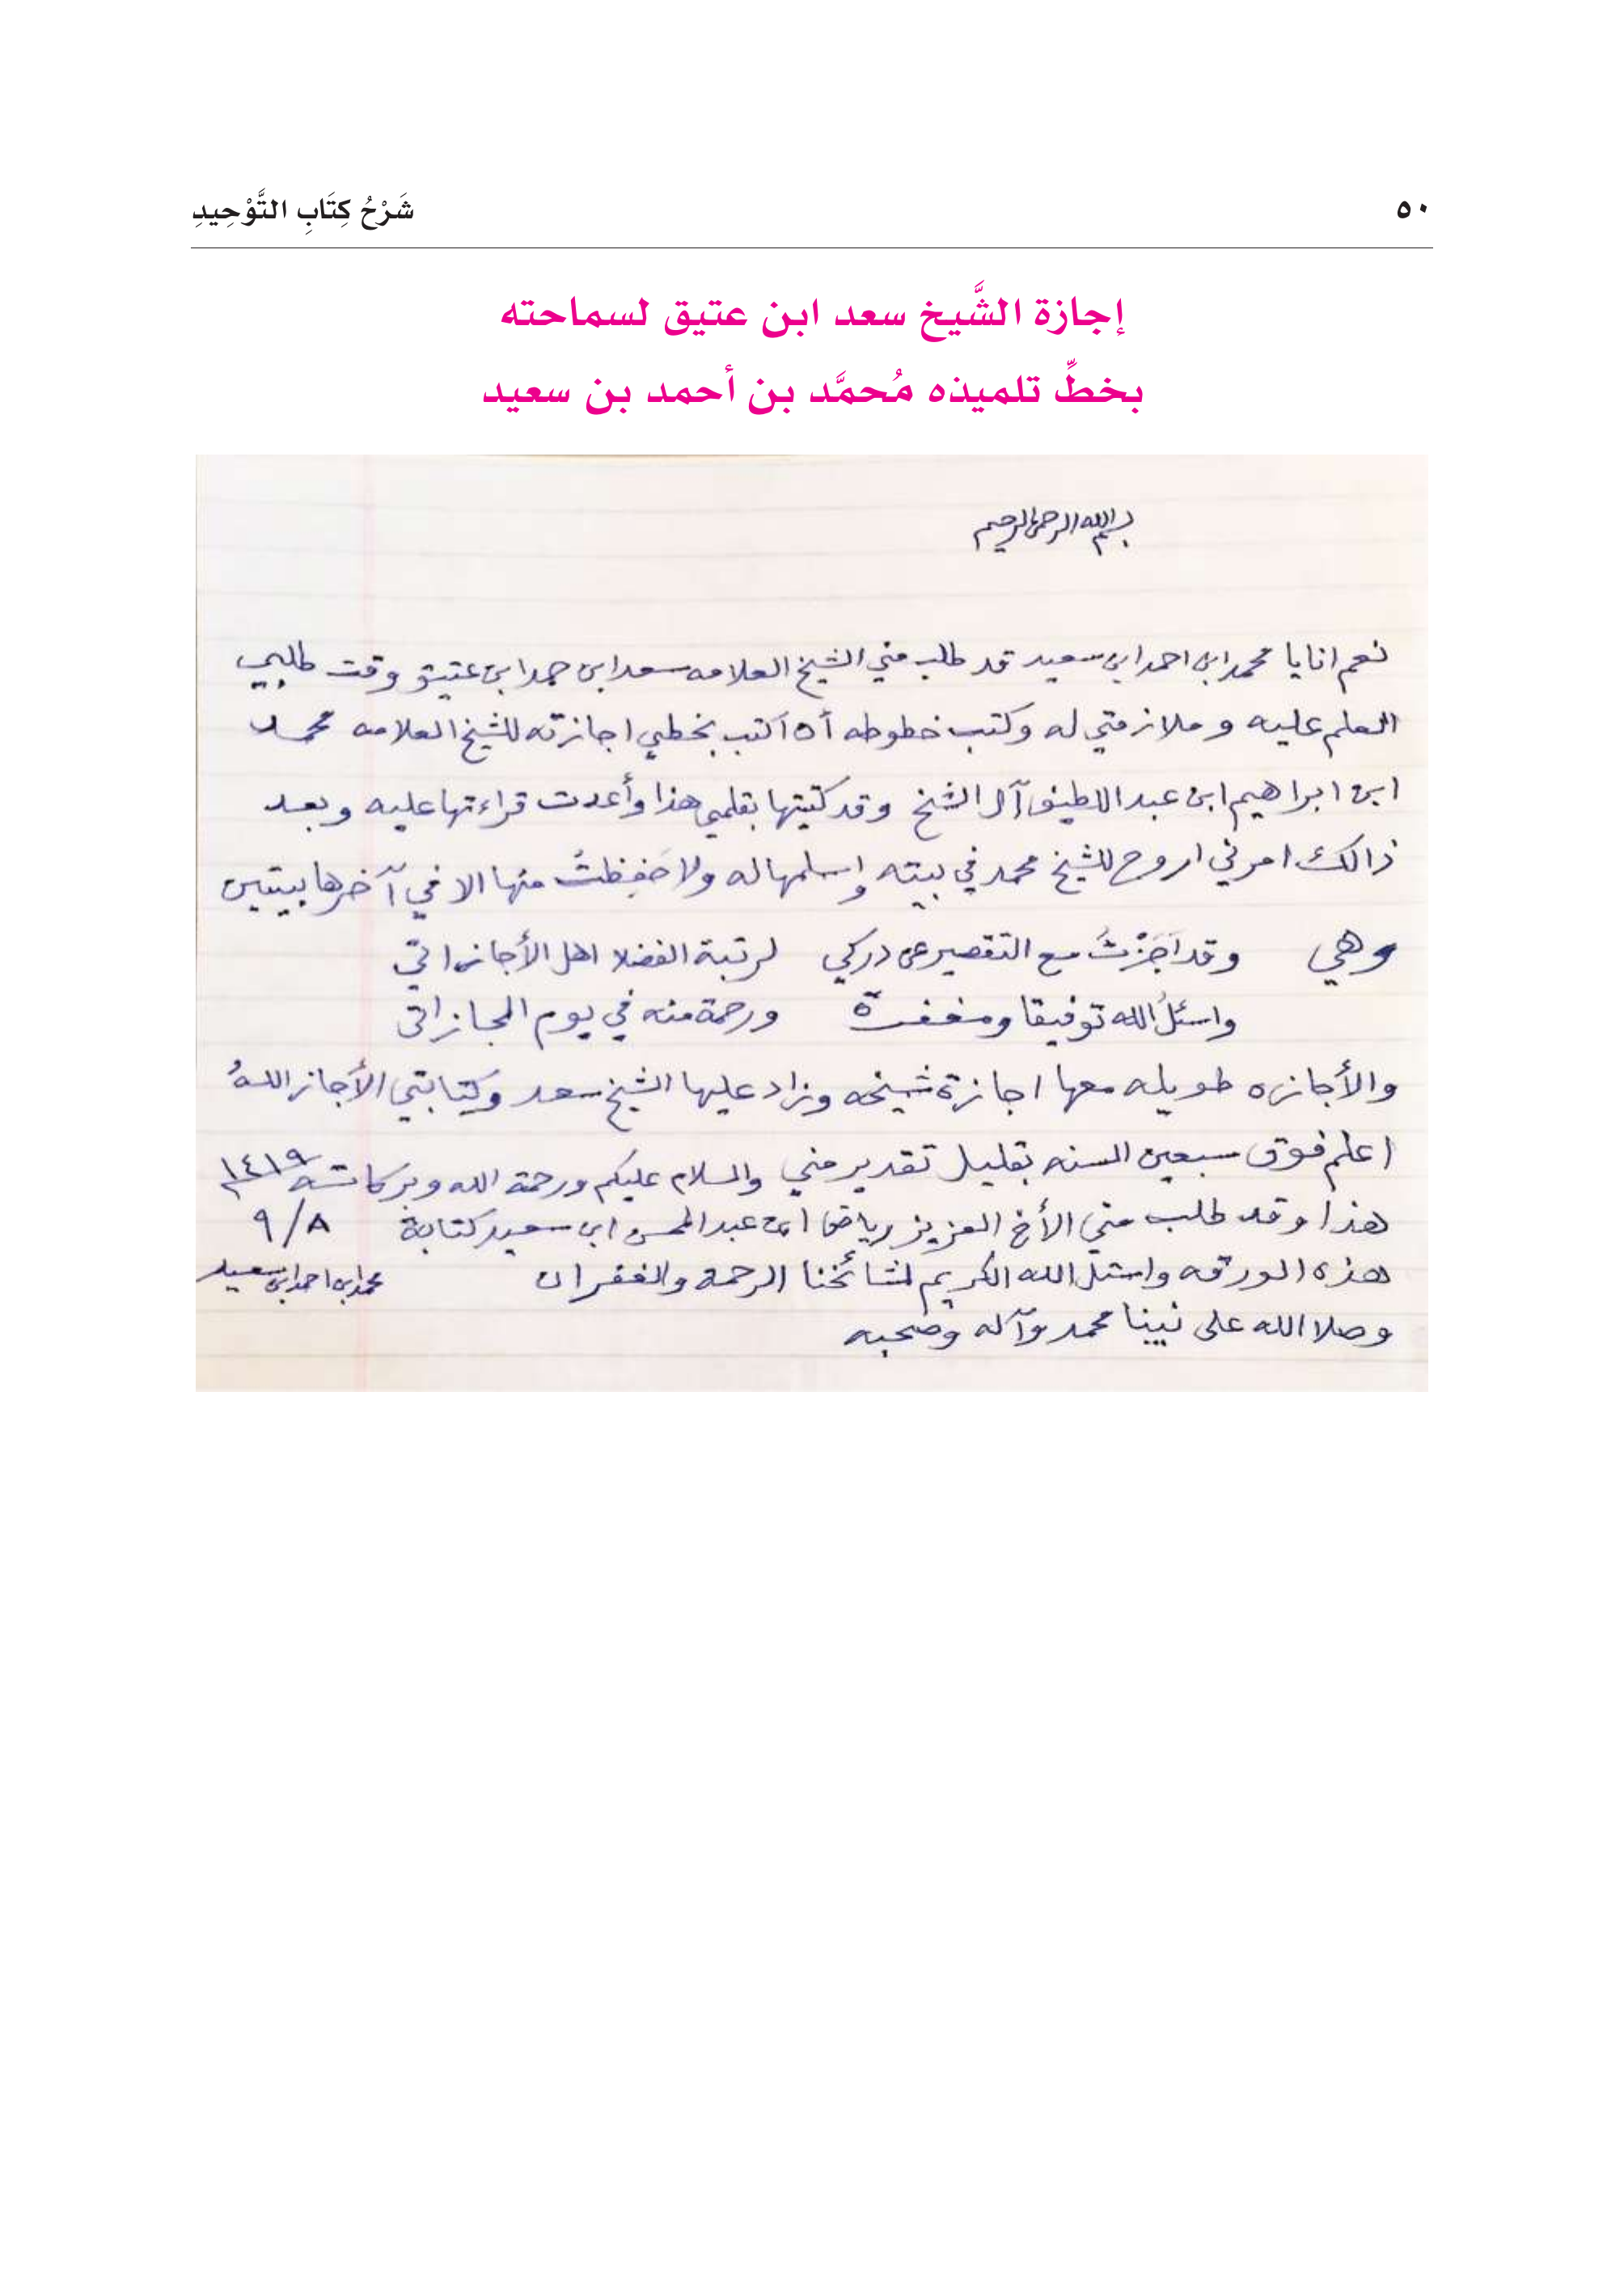 ٥٠
شَرْحُ كِتَابِ التَّوْحِيدِ
إجازة الشَّيخ سعد ابن عتيق لسماحته
بخطِّ تلميذه مُحمَّد بن أحمد بن سعيد
بسم الله الرحمن الرحيم
نعم انا يا محمد ابن احمد ابن سعيد قد طلب مني الشيخ العلامه سعد ابن حمد ابن عتيق وقت طلبي
العلم عليه وملازمتي له وكتب خطوطه أن اكتب بخطي اجازته للشيخ العلامه محمد
ابن ابراهيم ابن عبد اللطيف آل الشخ وقد كتبتها بقلمي هذا وأعدت قراءتها عليه وبعد
ذالك امرني اروح للشيخ محمد في بيته واسلمها له ولا حَفِظتُ منها الا في آخرها بيتين
وهي وقد اَجَزْتُ مع التقصير عن دركي لرتبة الفضلا اهل الأجازاتي
واسئلُ الله توفيقا ومغفرة ورحمة منه في يوم المجازاتى
والأجازه طويله معها اجازة شيخه وزاد عليها الشيخ سعد وكتابتي الأجاز اللهُ
اعلم فوق سبعين السنه بقليل تقدير مني والسلام عليكم ورحمة الله وبركاته ١٤١٩
هذا وقد طلب مني الأخ العزيز رياض ابن عبد المحسن ابن سعيد كتابة ٩/٨
هذه الورقه واسئل الله الكريم لمشائخنا الرحمة والغفران محمد ابن احمد ابن سعيد
وصلا الله على نبينا محمد وآله وصحبه